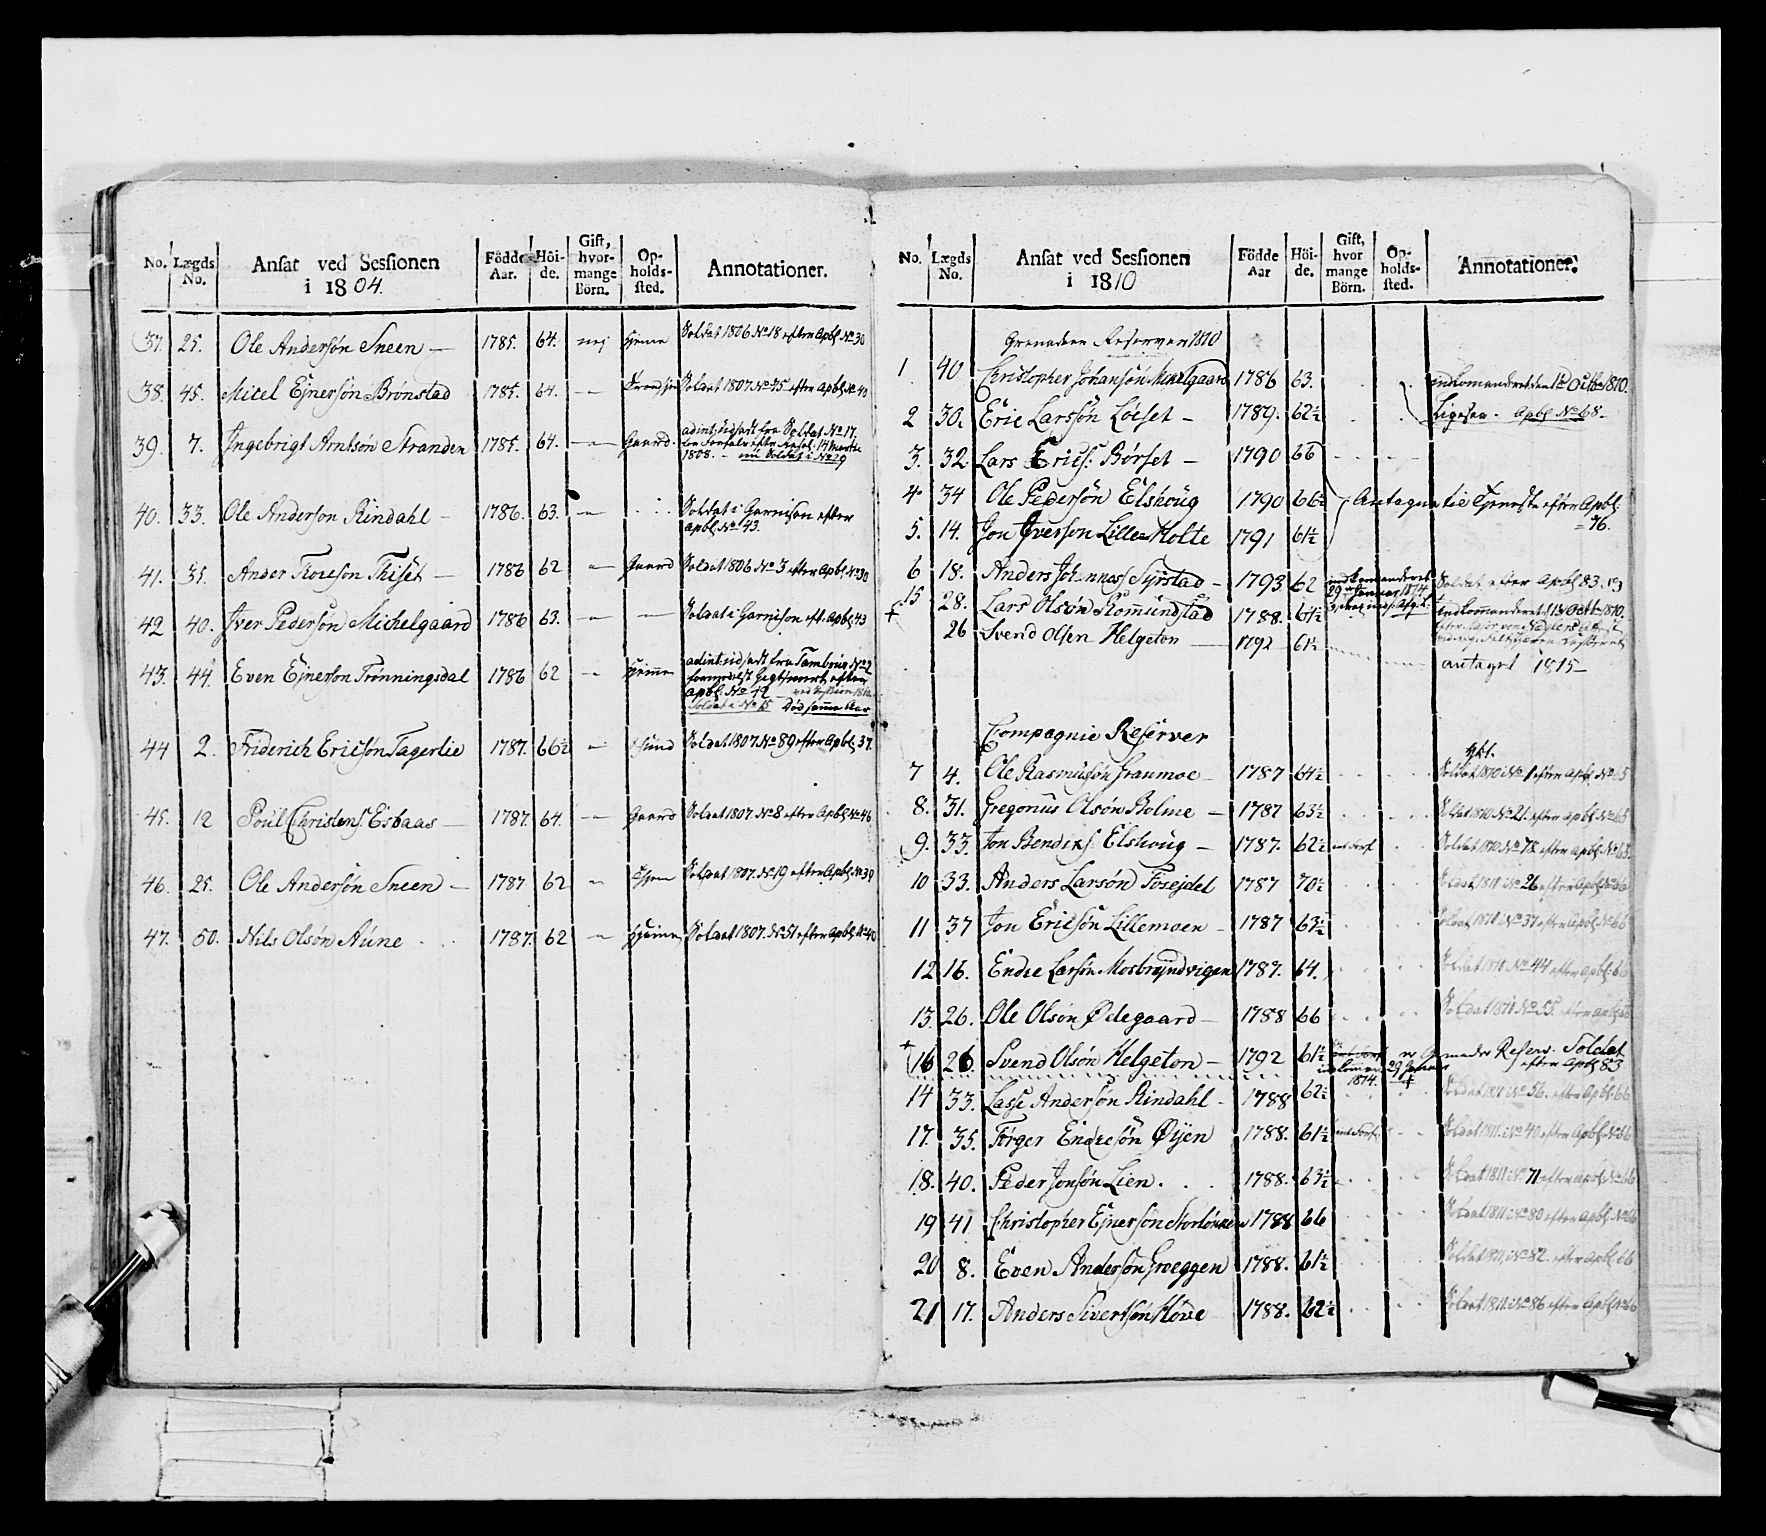 No. | Lægds No. | Ansat ved Sessionen i 1804. | Födde Aar. | Höide. | Gift, hvormange Börn. | Opholdssted. | Annotationer.
37. 25. Ole Andersön Sneen — 1785. 64. nej hjeme Soldat 1806 No 18 efter Apbl. No 30
38. 45. Mikel Ejnersön Brönstad 1785. 64. — Soldat 1807. No 75 efter Apbl No 40
39. 7. Ingebrigt Arntson Stranden 1785. 64. — Gaard. adint: udsadt fra Soldat No 17,
Resol. 14 Martii
1808. — nu Soldat i No 29
40. 33. Ole Anderson Rindahl — 1786. 63. — Soldat i Garnison efter
Apbl. No 43.
41. 35. Ander Thoreson Thiset — 1786 62 — Gaard Soldat 1806 No 3 efter Apbl. No 30
42 40. Iver Pederson Mickelgaard 1786 63. — — Soldat i Garnison eft. Apbl. 43
43. 44. Even Ejnerson Trönningsdal 1786 62 — hjemme adint: udsadt fra Tambour No 2
formedelst efter
Apbl. No 42 — ved Session 1810
Soldat i No 15 Död samme Aar
44 2. Friderich Ericsön Fagerlie 1787. 66½ — Soldat 1807. No 89 efter Apbl. 37.
45. 12 Poul Christens: Esbaas — 1787. 64. — Gaard Soldat 1807. No 8 efter Apbl. No 46
46. 25. Ole Andersön Sneen — 1787 62 — Hjem Soldat 1807. No 19 efter Apbl. No 39
47. 50. Nils Olsön Aune 1787. 62 — hjeme Soldat 1807. No 51 efter Apbl. No 40
No. | Lægds No. | Ansat ved Sessionen i 1810 | Födde Aar | Höide. | Gift, hvor mange Börn. | Opholdssted. | Annotationer.
Grenadeer Reserver 1810
1. 40 Christopher Johansön Mikelgaard 1786 63. indkomanderet den 1de Octbr 1810.
2 30. Eric Larssön Löeset — 1789. 62½ Ligesaa. Apbl. No 68.
3. 32 Lars Erics: Börset — 1790 66
4. 34 Ole Pedersön Elshoug 1790 66½ Antagne til Tjeneste efter Apbl.
5. 14. Jon Iverson Lille Holte 1791 61½ = 76.
6 18. Anders Johannes: Syrstad — 1793 62 indkomanderet
29 Januar 1814 Soldat efter Apbl 83. 13
15 28. Lars Olsön Romundstad 1788. 64½ indkommanderet d 13 Octbr 1810.
26 Svend Olsen Helgeton — 1792 61½
antaget 1815
Compagnie Reserver
7 4. Ole Rasmusön Graumoe — 1787 64½ Soldat 1810 i No 1 efter Apbl. No 65
8. 31. Gregorius Olsön Bolme — 1787 63½ Soldat 1810 No 21. efter Apbl. No 65
9. 33. Jon Bendixs: Elshoug — 1787. 62½ Soldat 1810 No 78 efter Apbl. No 65.
10 33. Anders Larsön Fosejdel 1787 70½ Soldat 1811 i No 26 efter Apbl. No 66
11 37 Jon Ericsön Lillemoen — 1787 63½ Soldat 1811 No 37 efter Apbl. No 66
12 16. Endre Larsön Mosbrøndvigen 1787. 64. Soldat 1811 No 44 efter Apbl. 66
13. 26. Ole Olsön Ødegaard — 1788 66 Soldat 1811 No 55. efter Apbl. 66
16 26. Svend Olsön Helgeton — 1792 61½ er Grenader Reserv. Soldat
29 Januar efter Apbl 83
1814.
14 33. Lasse Andersön Rindahl — 1788 62½ Soldat 1811 No 56. efter Apbl. 66
17. 35. Törger Endresön Øyen 1788. 61½ Soldat 1811. i No 40 efter Apbl. No 66
18. 40. Peder Jonsön Lien. 1788. 63½ Soldat 1811 i No 71 efter Apbl. No 66
19 41 Christopher Ejnerson 1788 66 Soldat 1811 i No 80 efter Apbl. No 66
20 8. Even Andersön Groeggen 1788. 61½ Soldat 1811, i No 82. efter Apbl. 66
21 17. Anders Sivertsön Hove 1788. 62½ Soldat 1811. i No 86 efter Apbl. No 66